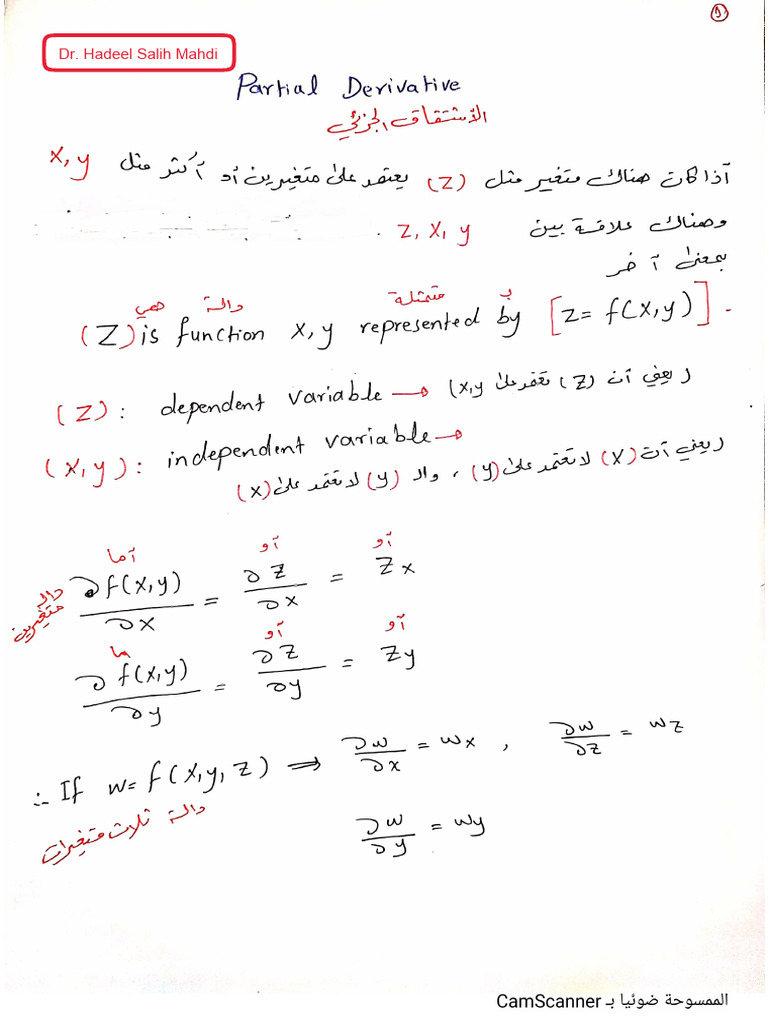 ①
Dr. Hadeel Salih Mahdi
Partial Derivative
الأشتقاق الجزئي
آذا كان هناك متغير مثل (Z) يعتمد على متغيرين أو آكثر مثل x, y
وهناك علاقة بين z, x, y .
بمعنى آخر
دالة هي متمثلة بـ
(Z) is function x, y represented by [z= f(x,y)] .
(Z): dependent variable → يعني آن (Z) تعتمد على x,y)
(x,y): independent variable →
يعني آن (x) لا تعتمد على (y) ، والـ (y) لا تعتمد على (x)
آما آو آو
دالة متغيرين
∂f(x,y)/∂x = ∂z/∂x = Zx
آو آو
∂f(x,y)/∂y = ∂z/∂y = Zy
∴ If w= f(x,y,z) ⇒ ∂w/∂x = wx , ∂w/∂z = wz
دالة ثلاث متغيرات
∂w/∂y = wy
الممسوحة ضوئيا بـ CamScanner